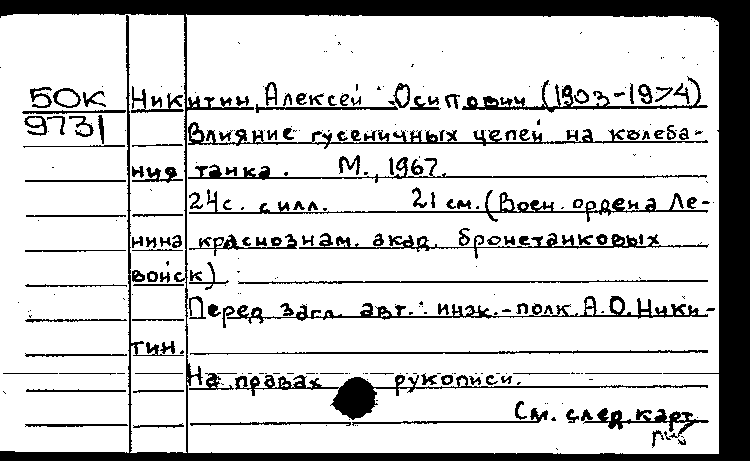 50К Никитин, Алексей Осипович (1903-1974)
9731 Влияние гусеничных цепей на колеба-
ния танка. М., 1967.
24с. с илл. 21 см. (Воен. ордена Ле-
нина краснознам. акад. бронетанковых
войск)
Перед загл. авт.: инж.-полк. А.О. Ники-
тин.
На правах рукописи.
См. след. карт.